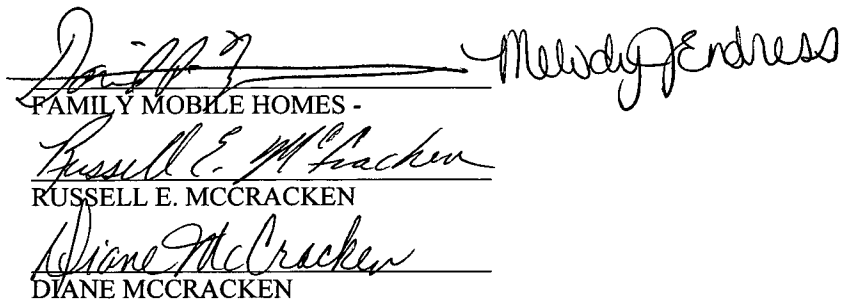 Melody J Endress
FAMILY MOBILE HOMES -
Russell E. McCracken
RUSSELL E. MCCRACKEN
Diane McCracken
DIANE MCCRACKEN